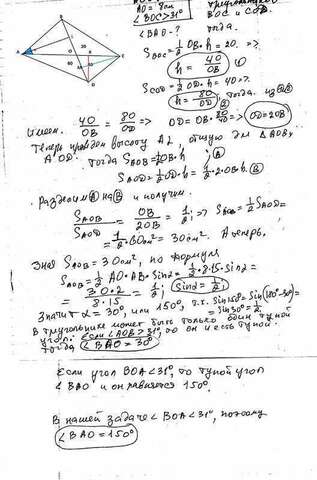 AO = 8см
<BOC>31°
<BAO - ?
BOC и COD.
Тогда.
S BOC = 1/2 OB·h = 20 =>
h = 40/OB
S COD = 1/2 OD·h = 40 =>
h = 80/OD
из
Имеем. 40/OB = 80/OD => OD = OB·80/40 => OD = 2OB
Теперь проведем высоту AL, общую для △AOB и
AOD. Тогда S AOB = 1/2 OB·h (A)
S AOD = 1/2 OD·h = 1/2·2·OB·h. (B)
Разделим (A) на (B) и получим.
S AOB / S AOD = OB/2OB = 1/2; => S AOB = 1/2 S AOD =
= 1/2·60см² = 30см². А теперь,
зная S AOB = 30см², по формуле
S AOB = 1/2 AO·AB·sin α = 1/2·8·15·sin α =
= 30·2/8·15 = 1/2; sin α = 1/2
Значит α = 30°, или 150°, т.к. sin 150° = sin(180°-30°) =
= sin 30° = 1/2.
В треугольнике может быть только один тупой
угол. Если <AOB > 31°, то он и есть тупой.
Тогда <BAO = 30°
Если угол BOA < 31°, то тупой угол
<BAO и он равняется 150°.
В нашей задаче <BOA < 31°, поэтому
<BAO = 150°